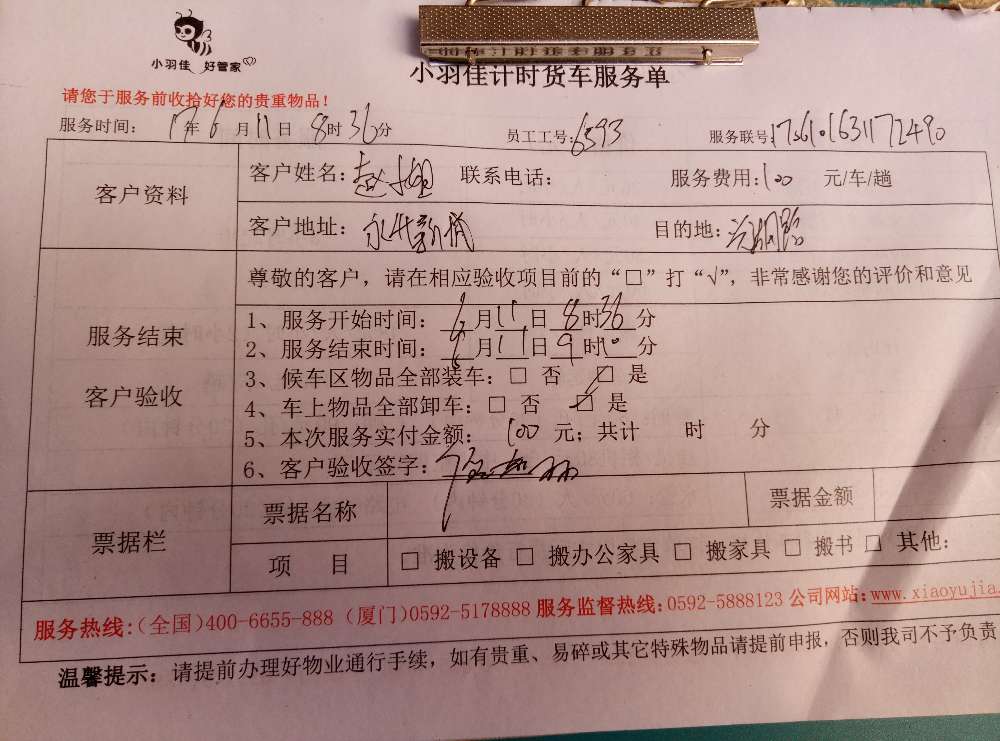 小羽佳 好管家
小羽佳计时货车服务单
请您于服务前收拾好您的贵重物品!
服务时间: 17年6月11日8时36分 员工工号:6593 服务联号:
客户资料
客户姓名:赵小姐 联系电话: 服务费用:100 元/车/趟
客户地址: 目的地:
尊敬的客户，请在相应验收项目前的“□”打“√”，非常感谢您的评价和意见
服务结束
客户验收
1、服务开始时间: 6月11日8时36分
2、服务结束时间: 6月11日9时10分
3、候车区物品全部装车: □ 否 □ 是
4、车上物品全部卸车: □ 否 □ 是
5、本次服务实付金额: 100 元；共计 时 分
6、客户验收签字:
票据栏
票据名称 票据金额
项 目 □ 搬设备 □ 搬办公家具 □ 搬家具 □ 搬书 □ 其他:
服务热线:(全国)400-6655-888 (厦门)0592-5178888 服务监督热线:0592-5888123 公司网站:www.xiaoyujia.
温馨提示: 请提前办理好物业通行手续，如有贵重、易碎或其它特殊物品请提前申报，否则我司不予负责